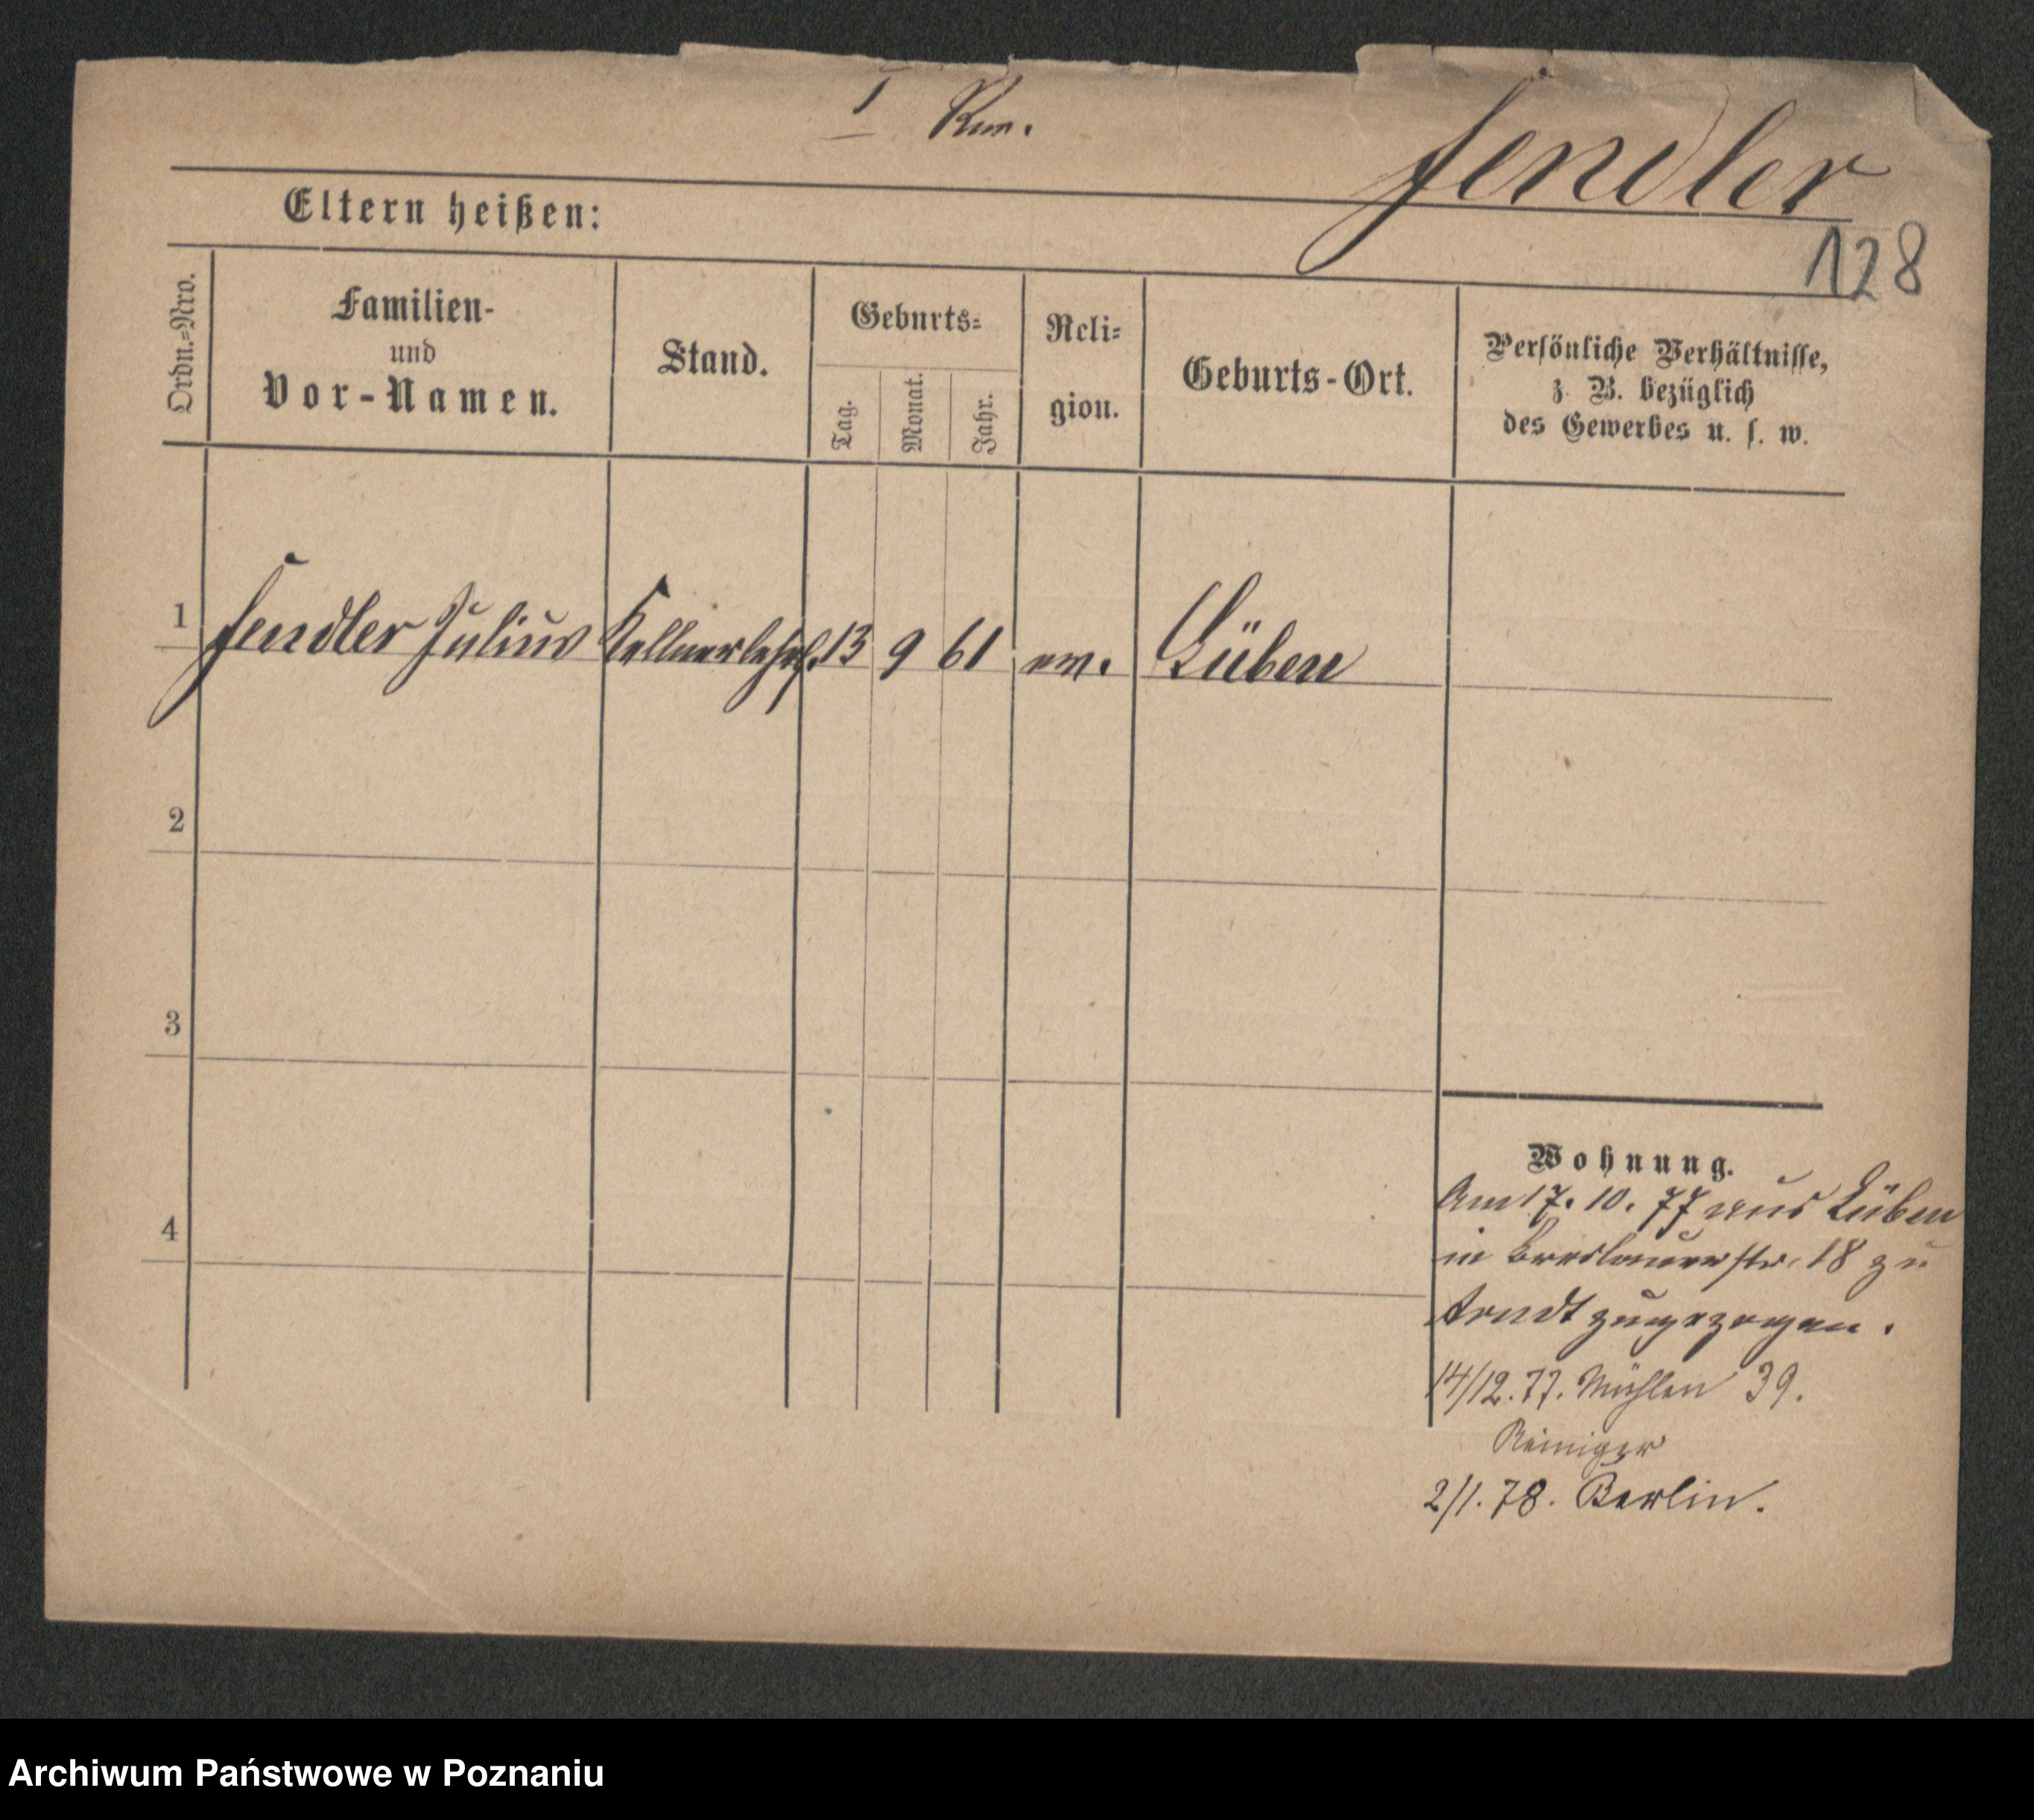 I
Fendler
Eltern heißen:
128
Ordn.-Nro.
Familien-
und
Vor-Namen.
Stand.
Geburts-
Tag.
Monat.
Jahr.
Reli-
gion.
Geburts-Ort.
Persönliche Verhältnisse,
z. B. bezüglich
des Gewerbes u. s. w.
1 Fendler Julius Kellnerlehrl. 13 9 61 ev. Lüben
2
3
4
Wohnung.
Am 17. 10. 77 aus Lüben
in Breslauerstr. 18 zu
Arndt zugezogen.
14/12. 77. Mühlen 39.
Reiniger
2/1. 78. Berlin.
Archiwum Państwowe w Poznaniu